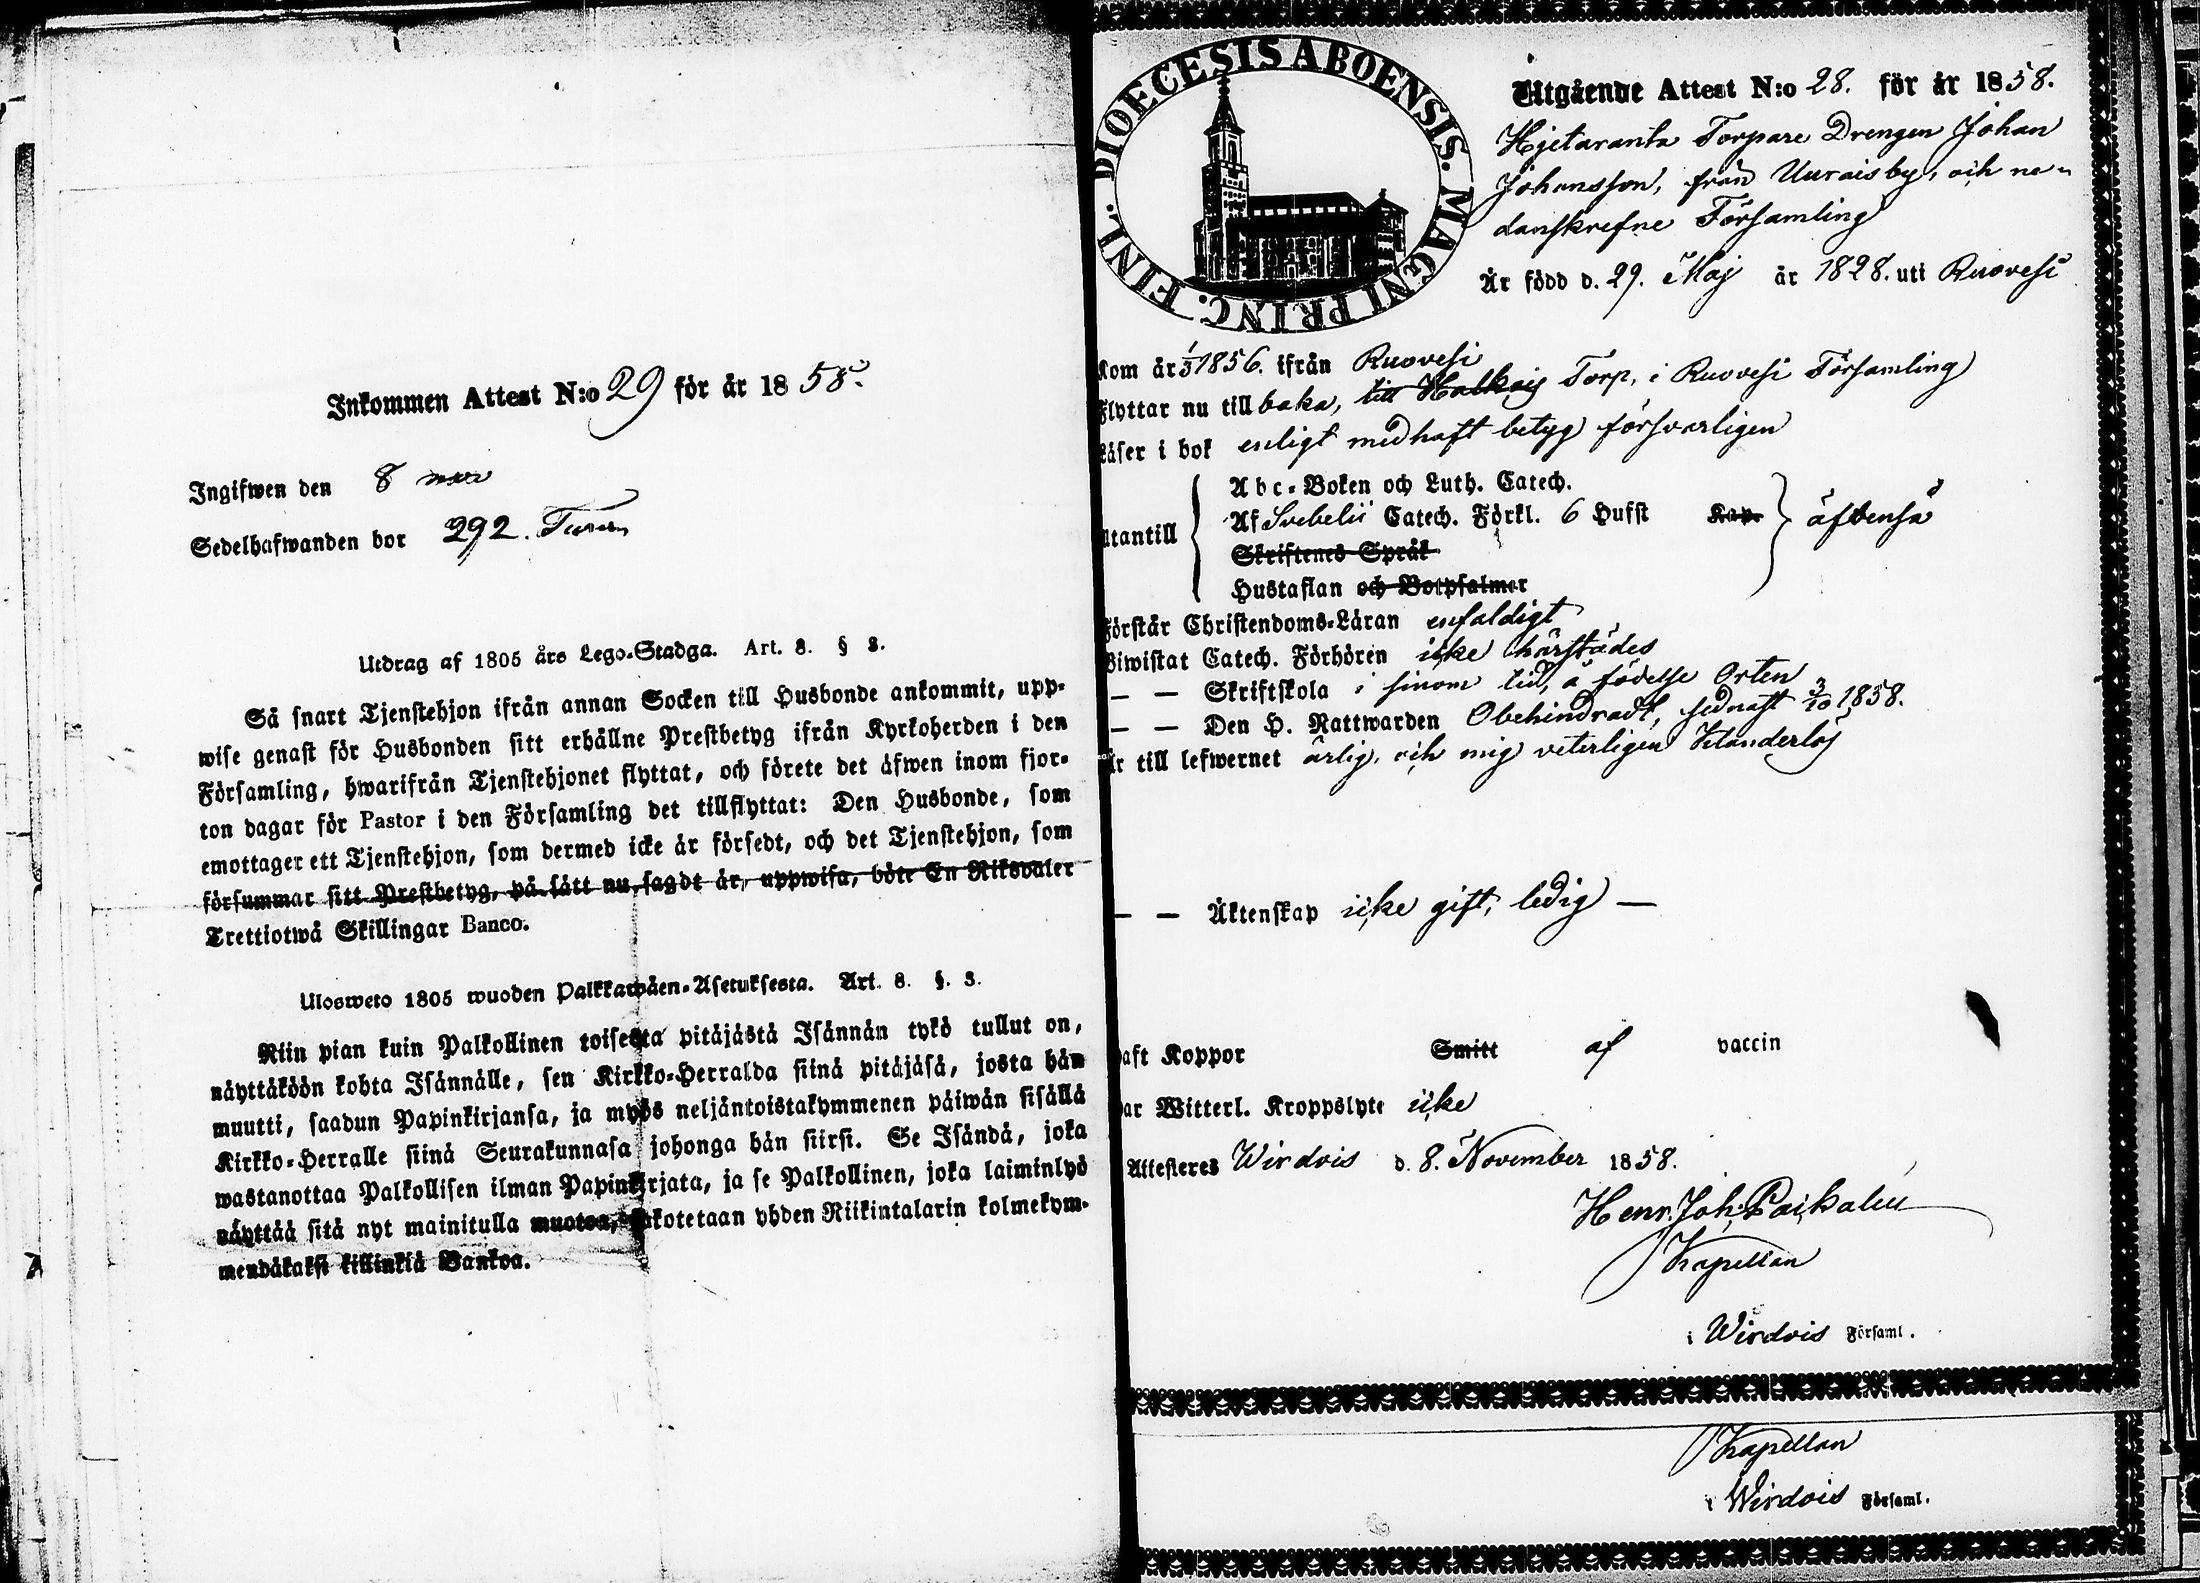 Inkommen Attest N:o 29 för år 1858.
Ingifwen den 8 nov
Sedelhafwanden bor 292.
Utdrag af 1805 års Lego-Stadga. Art. 8. § 3.
Så snart Tjenstehjon ifrån annan Socken till Husbonde ankommit, upp-
wise genast för Husbonden sitt erhållne Prestbetyg ifrån Kyrkoherden i den
Församling, hwarifrån Tjenstehjonet flyttat, och förete det äfwen inom fjor-
ton dagar för Pastor i den Församling det tillflyttat: Den Husbonde, som
emottager ett Tjenstehjon, som dermed icke är försedt, och det Tjenstehjon, som
försummar sitt Prestbetyg, på sätt nu sagdt är, uppwisa, böte En Riksdaler
Trettiotwå Skillingar Banco.
Ulosweto 1805 wuoden Palkkawäen-Asetuksesta. Art. 8. §. 3.
Niin pian kuin Palkollinen toisesta pitäjästä Isännän tykö tullut on,
näyttäköön kohta Isännälle, sen Kirkko-Herralda siinä pitäjäsä, josta hän
muutti, saadun Papinkirjansa, ja myös neljäntoistakymmenen päiwän sisällä
Kirkko-Herralle siinä Seurakunnasa johonga hän siirsi. Se Isändä, joka
wastanottaa Palkollisen ilman Papinkirjata, ja se Palkollinen, joka laiminlyö
näyttää sitä nyt mainitulla muotoa, sakotetaan yhden Riikintalarin kolmekym-
mendäkaksi killinkiä Bankoa.
DIOECESIS ABOENSIS. MAGNI PRINC. FINL.
Utgående Attest N:o 28. för år 1858.
Hjetaranta Torpare Drengen Johan
Johansson, från Uuraisby, och ne-
danskrefne Församling
Är född d. 29. Maj år 1828. uti Ruovesi
Kom år 1/3 1856. ifrån Ruovesi
Flyttar nu till baka, till Torp, i Ruovesi Församling
Läser i bok enligt medhaft betyg försvarligen
Utantill
Abc-Boken och Luth. Catech.
Af Svebelii Catech. Förkl. 6 Hufst Kap.
Skriftenes Språk
Hustaflan och Botpsalmer
äfvenså
Förstår Christendoms-Läran enfaldigt
Biwistat Catech. Förhören icke härstädes
— — Skriftskola i sinom tid, å födelse Orten
— — Den H. Nattwarden Obehindradt, sednast 3/10 1858.
Är till lefwernet ärlig, och mig veterligen klanderlös
— — Äktenskap icke gift, ledig —
aft Koppor Smitt af vaccin
ar Witterl. Kroppslyte icke
Attesteres Wirdois d. 8. November 1858.
Henr. Joh.
Kapellan
i Wirdois Församl.
Kapellan
i Wirdois Församl.